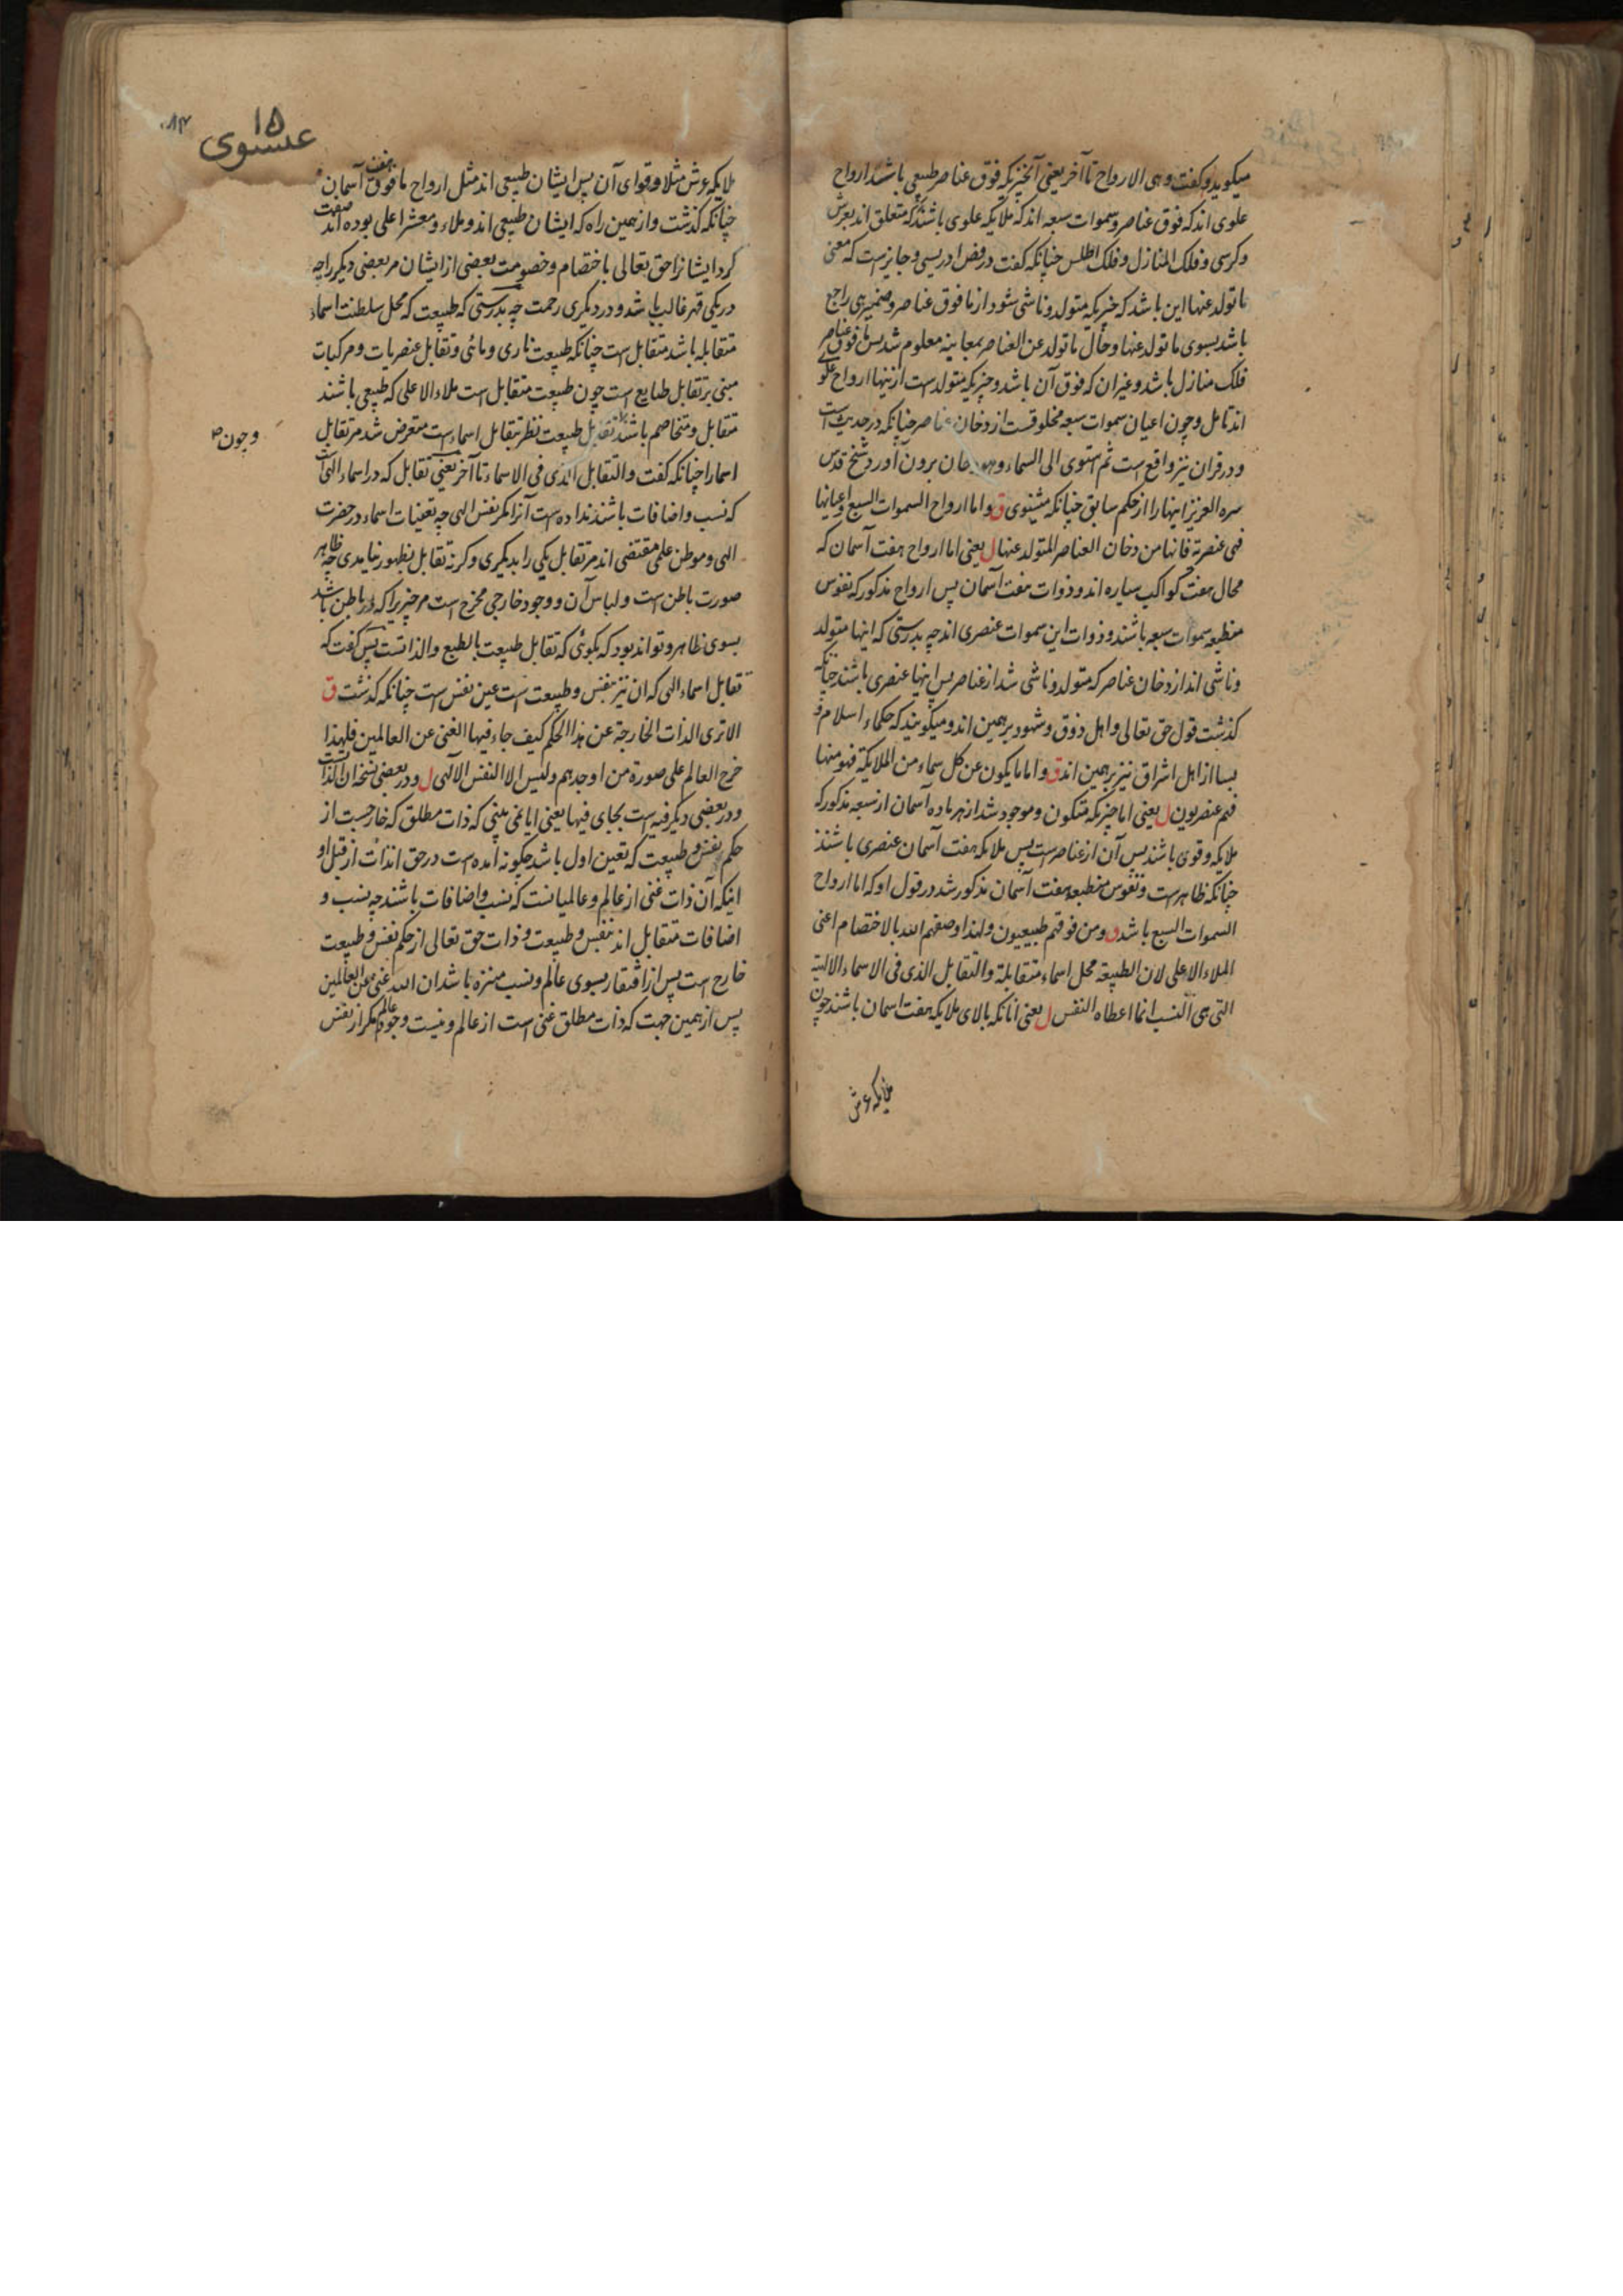 میکوید و کفت وهی الارواح تا آخر یعنی آنچیزیکه فوق عناصر طبیعی باشند ارواح
علوی اند که فوق عناصر و سموات سبعه اند که ملایکه علوی باشند که متعلق اند بعرش
و کرسی و فلک المنازل و فلک اطلس چنانکه کفت در فص ادریسی و جایز است که معنی
ما تولد عنها این باشد که چیزیکه متولد و ناشی شود از ما فوق عناصر و ضمیر هی راجع
باشد بسوی ما تولد عنها و حال ما تولد عن العناصر بمعاینه معلوم شد پس ما فوق عناصر
فلک منازل باشد و غیر ان که فوق آن باشد و چیزیکه متولد است از ینها ارواح علوی
اند تامل و چون اعیان سموات سبعه مخلوقست از دخان عناصر چنانکه در حدیث است
و در قران نیز واقع است ثم استوی الی السماء وهی دخان برون آورد شیخ قدس
سره العزیز اینها را از حکم سابق چنانکه میشنوی ق واما ارواح السموات السبع واعیانها
فهی عنصریة فانها من دخان العناصر المتولد عنها ل یعنی اما ارواح هفت آسمان که
محال هفت کواکب سیاره اند و ذوات هفت آسمان پس ارواح مذکور که نفوس
منطبعه سموات سبعه باشند و ذوات این سموات عنصری اند چه بدرستی که اینها متولد
و ناشی اند از دخان عناصر که متولد و ناشی شد از عناصر پس اینها عنصری باشند چنانکه
کذشت قول حق تعالی و اهل ذوق و شهود برهمین اند و میکویند که حکماء اسلام و
بسا از اهل اشراق نیز برهمین اند ق واما ما یکون عن کل سماء من الملایکة فهو منها
فهم عنصریون ل یعنی اما چیزیکه متکون و موجود شد از هر ماده آسمان از سبعه مذکور که
ملایکه و قوی باشند پس آن از عناصر است پس ملایکه هفت آسمان عنصری باشند
چنانکه ظاهر است و نفوس منطبعه هفت آسمان مذکور شد در قول او که اما ارواح
السموات السبع باشد ق ومن فوقهم طبیعیون ولهذا وصفهم الله بالاختصام اعنی
الملاء الاعلی لان الطبیعة محل اسماء متقابلة والتقابل الذی فی الاسماء الالهیة
التی هی النسب انما اعطاه النفس ل یعنی آنانکه بالای ملایکه هفت اسمان باشند چون
ملایکه عرش
۱۵
عیسوی
ملایکه عرش مثلا و قوای آن پس ایشان طبیعی اند مثل ارواح ما فوق هفت آسمان
چنانکه کذشت و از همین راه که ایشان طبیعی اند و ملاء و معشر اعلی بوده اند صفت
کرد ایشانرا حق تعالی باختصام و خصومت بعضی از ایشان مر بعضی دیکر را چه
در یکی قهر غالب باشد و در دیکری رحمت چه بدرستی که طبیعت که محل سلطنت اسماء
متقابله باشد متقابل است چنانکه طبیعت ناری و مائی و تقابل عنصریات و مرکبات
مبنی بر تقابل طبایع است چون طبیعت متقابل است ملاء الاعلی که طبیعی باشند
متقابل و متخاصم باشند تقابل طبیعت نظر بتقابل اسماء است متعرض شد مر تقابل
و چون ص
اسما را چنانکه کفت والتقابل الذی فی الاسماء تا آخر یعنی تقابل که در اسماء الهی است
که نسب و اضافات باشند نداده است آنرا مکر نفس الهی چه تعینات اسماء در حضرت
الهی و موطن علمی مقتضی اند مر تقابل یکی را بدیکری و کرنه تقابل بظهور نیامدی چه ظاهر
صورت باطن است و لباس آن و وجود خارجی مخرج است مر چیزیرا که در باطن باشد
بسوی ظاهر و تواند بود که بکوئی که تقابل طبیعت بالطبع و الذاتست پس کفت که
تقابل اسماء الهی که ان نیز بنفس و طبیعت است عین نفس است چنانکه کذشت ق
الا تری الذات الخارجة عن هذا الحکم کیف جاء فیها الغنی عن العالمین فلهذا
خرج العالم علی صورة من اوجدهم ولیس الا النفس الالهی ل و در بعضی نسخ ان الذات است
و در بعضی دیکر فیه است بجای فیها یعنی ایا نمی بینی که ذات مطلق که خارجست از
حکم نفس و طبیعت که تعین اول باشد چکونه امده است در حق انذات از قبل او
اینکه آن ذات غنی از عالم و عالمیانست که نسب و اضافات باشند چه نسب و
اضافات متقابل اند بنفس و طبیعت و ذات حق تعالی از حکم نفس و طبیعت
خارج است پس از افتقار بسوی عالم و نسب منزه باشد ان الله غنی عن العالمین
پس از همین جهت که ذات مطلق غنی است از عالم و نیست وجود عالم مکر از نفس